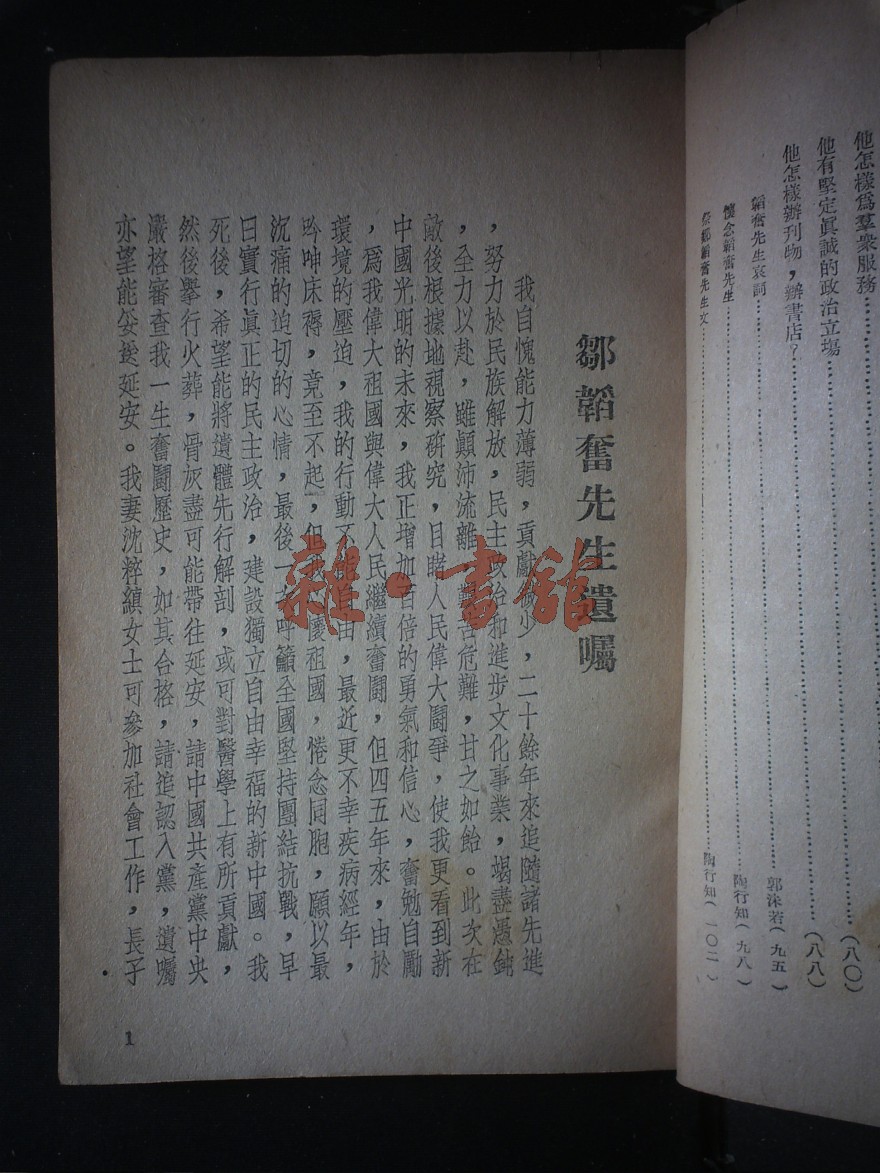 他怎樣爲羣衆服務……(八〇)
他有堅定眞誠的政治立場
他怎樣辦刊物，辦書店？……(八八)
韜奮先生哀詞……郭沫若(九五)
懷念韜奮先生……陶行知(九八)
祭鄒韜奮先生文……陶行知(一〇二)
鄒韜奮先生遺囑
我自愧能力薄弱，貢獻微少，二十餘年來追隨諸先進
，努力於民族解放，民主政治和進步文化事業，竭盡愚鈍
，全力以赴，雖顚沛流離，艱苦危難，甘之如飴。此次在
敵後根據地視察硏究，目睹人民偉大鬪爭，使我更看到新
中國光明的未來，我正增加百倍的勇氣和信心，奮勉自勵
，爲我偉大祖國與偉大人民繼續奮鬪，但四五年來，由於
環境的壓迫，我的行動不能自由，最近更不幸疾病經年，
吟呻床褥，竟至不起，但我心懷祖國，惓念同胞，願以最
沉痛的迫切的心情，最後一次呼籲全國堅持團結抗戰，早
日實行眞正的民主政治，建設獨立自由幸福的新中國。我
死後，希望能將遺體先行解剖，或可對醫學上有所貢獻，
然後舉行火葬，骨灰盡可能帶往延安，請中國共產黨中央
嚴格審查我一生奮鬪歷史，如其合格，請追認入黨，遺囑
亦望能妥送延安。我妻沈粹縝女士可參加社會工作，長子
1
雜·書館